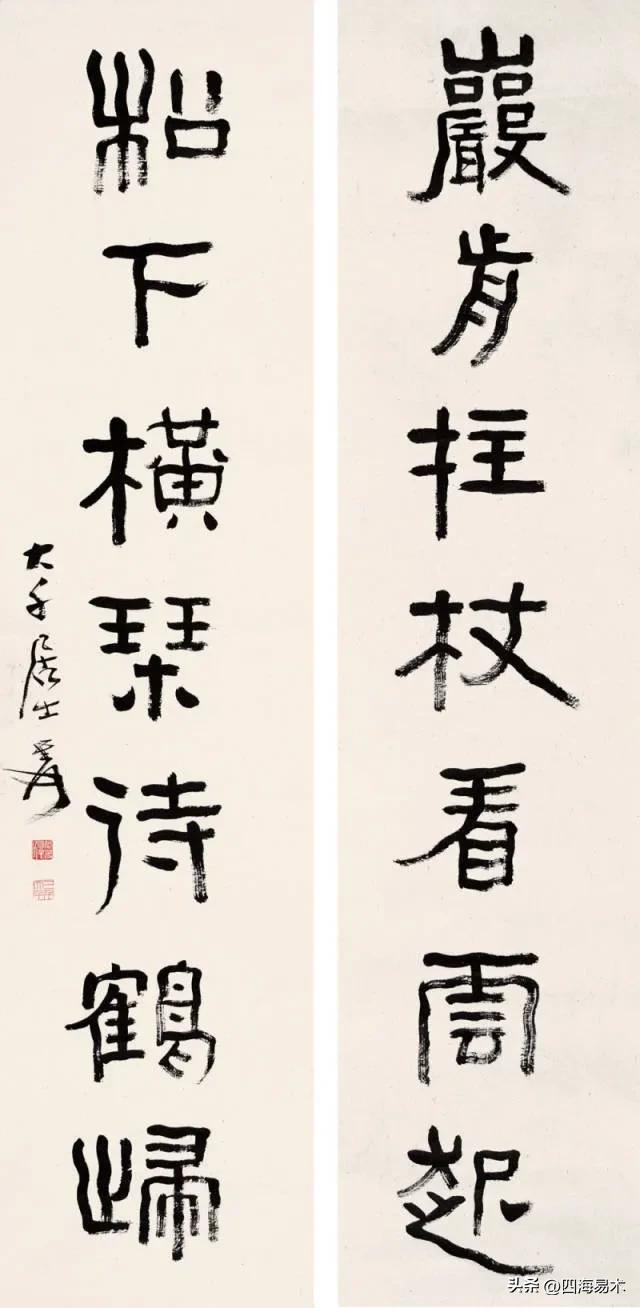 巖前拄杖看雲起
松下橫琴待鶴歸
大千居士爰
头条 @四海易木